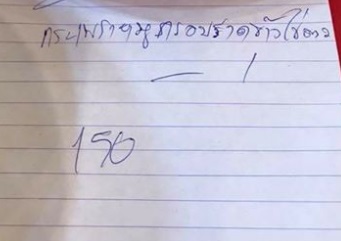 กระเพราหมูกรอบราดข้าวไข่ดาว
— 1
150